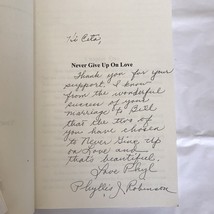 To Eeta,
Never Give Up On Love
Thank you for your
support. I know
from the wonderful
success of your
marriage to Bill
that the two of
you have chosen
to Never Give Up
on Love and
that's beautiful.
Love Phyl
Phyllis J. Robinson